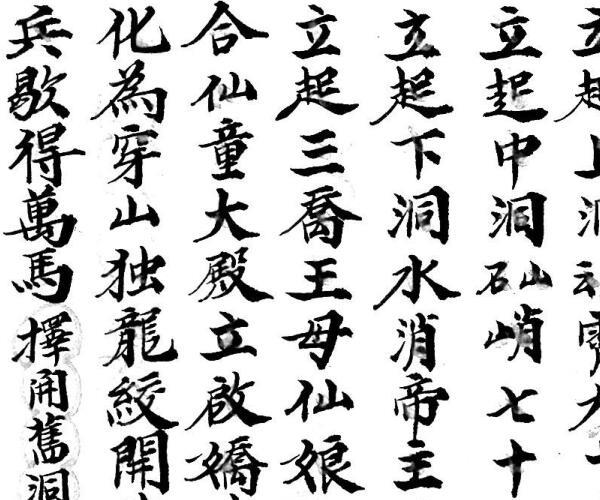 立起上洞
立起中洞仙峭七十
立起下洞水消帝主
立起三喬王母仙娘
合仙童大殿立啟嬌
化為穿山独龍絞開
兵歇得萬馬擇開舊洞